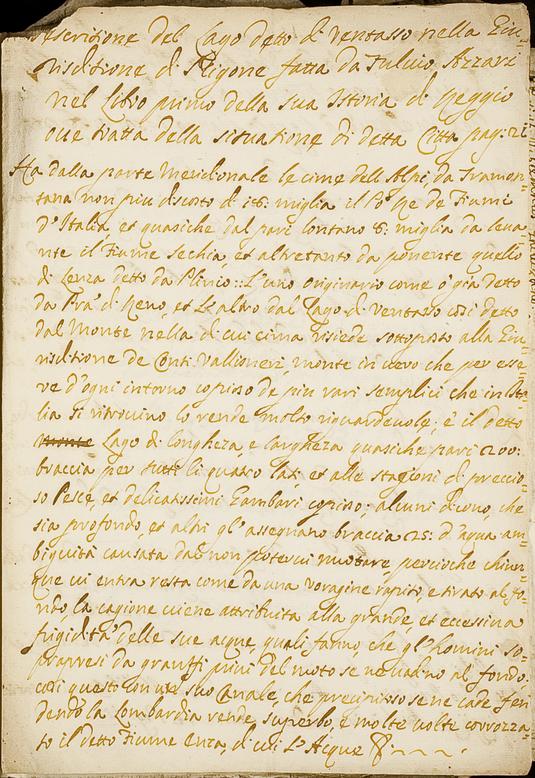 Descritione del Lago detto di Ventasso nella Giu-
risditione di Rigone fatta da Fulvio Azzari
nel Libro primo della sua Istoria di Reggio
oue tratta della situatione di detta Citta pag: 21
Ha dalla parte Meridionale le cime dell'Alpi, da Tramon-
tana non piu discosto di 18: miglia il Pò Re de Fiumi
d'Italia, et quasiche dal pari lontano 8: miglia da leua-
nte il Fiume Sechia, et altretanto da ponente quello
di Lenza detto da Plinio:: L'uno originario come è già detto
da Pra' di Reno, et L'altro dal Lago di Ventasso così detto
dal Monte nella di cui cima risiede sottoposto alla Giu-
risditione de Conti Vallisneri, monte in uero che per esse-
re d'ogni intorno copioso de piu rari semplici che in Ita-
lia si ritrouino lo rende molto riguardeuole, è il detto
monte Lago di longheza, e largheza quasiche pari 200:
braccia per tutti li quatro lati et alle stagioni di preccio-
so Pesce, et delicatissimi Gambari copioso; alcuni dicono, che
sia profondo, et altri gl'assegnano braccia 25: d'aqua am-
biguità causata dal non poterui nuotare percioche chiun-
que ui entra resta come da una voragine rapito, e tirato al fo-
ndo, la cagione uiene attribuita alla grande, et eccessiua
frigidità delle sue acque, quali fanno, che gl'homini so-
prapresi da granffi priui del moto se ne uadino al fondo.
così questo con un suo Canale, che precipitoso se ne cade fen-
dendo la Lombardia rende superbo, e molte uolte corrozza-
to il detto Fiume Enza, di cui l'Acque &.